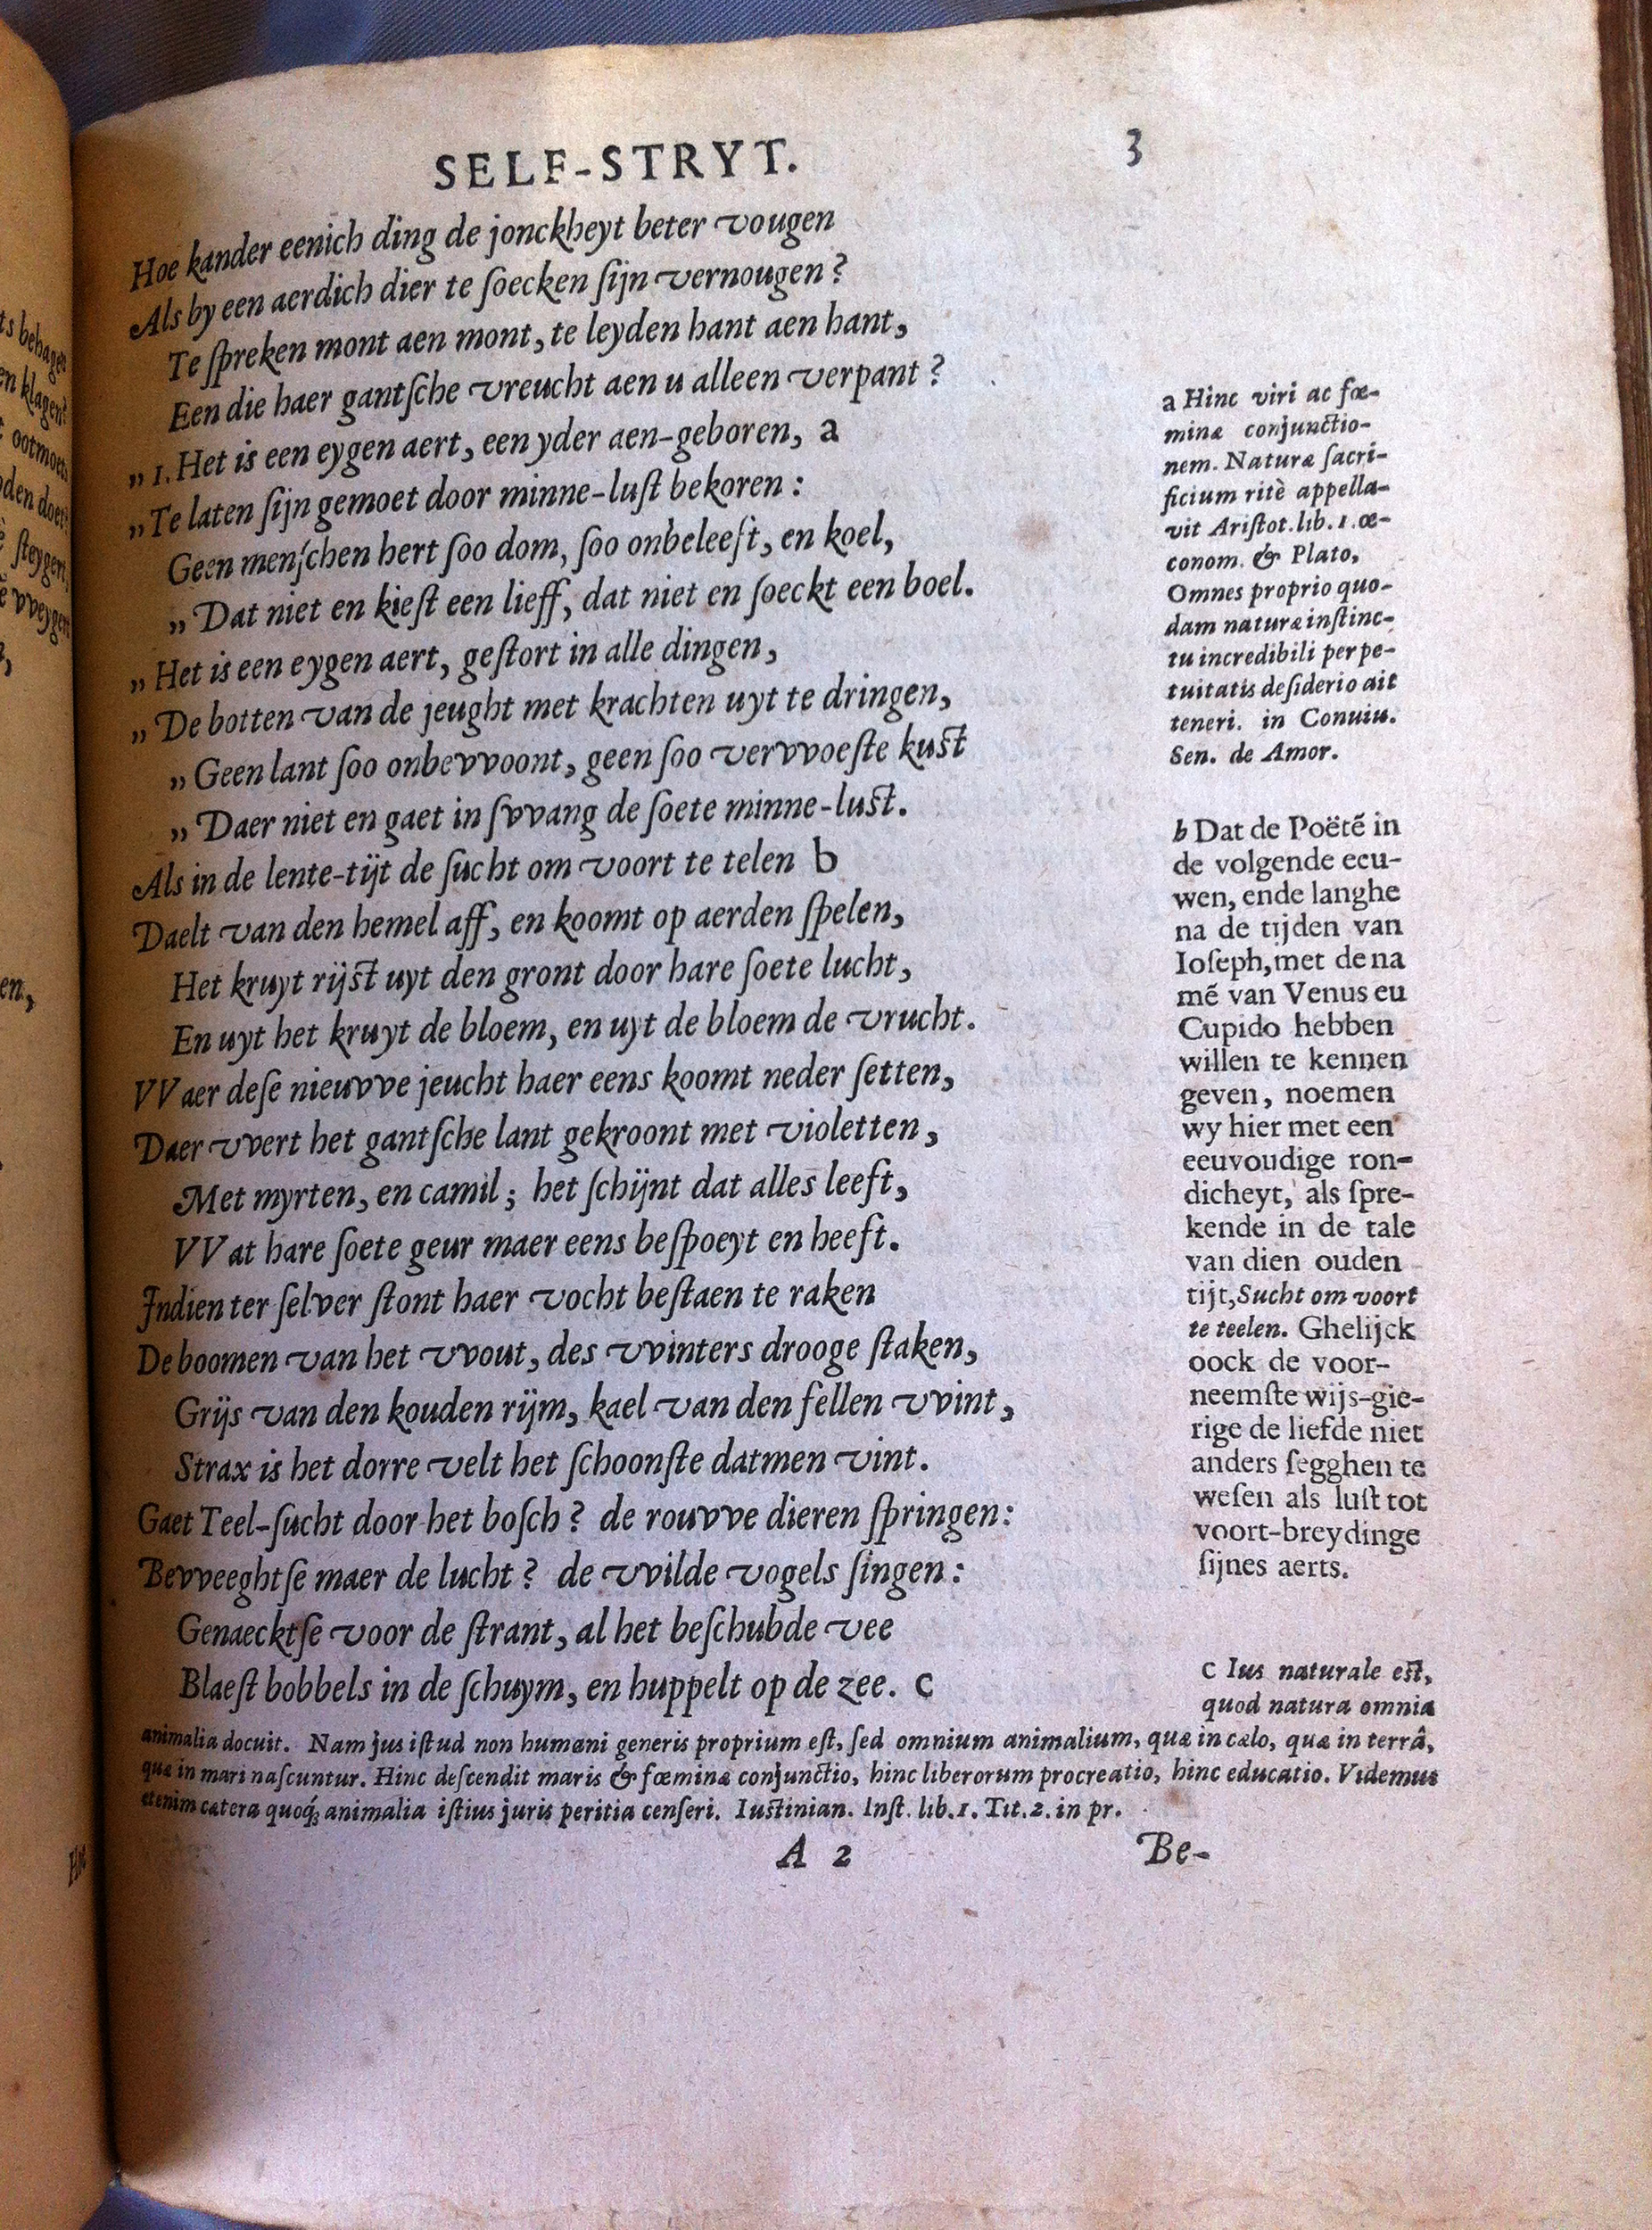 SELF-STRYT. 3
Hoe kander eenich ding de jonckheyt beter vougen
Als by een aerdich dier te ſoecken ſijn vernougen?
Te ſpreken mont aen mont, te leyden hant aen hant,
Een die haer gantſche vreucht aen u alleen verpant?
„ 1. Het is een eygen aert, een yder aen-geboren, a
„ Te laten ſijn gemoet door minne-luſt bekoren:
Geen menſchen hert ſoo dom, ſoo onbeleeft, en koel,
„ Dat niet en kieſt een lieff, dat niet en ſoeckt een boel.
„ Het is een eygen aert, geſtort in alle dingen,
„ De botten van de jeught met krachten uyt te dringen,
„ Geen lant ſoo onbevvoont, geen ſoo vervvoeſte kuſt
„ Daer niet en gaet in ſvvang de ſoete minne-luſt.
Als in de lente-tijt de ſucht om voort te telen b
Daelt van den hemel aff, en koomt op aerden ſpelen,
Het kruyt rijſt uyt den gront door hare ſoete lucht,
En uyt het kruyt de bloem, en uyt de bloem de vrucht.
VVaer deſe nieuvve jeucht haer eens koomt neder ſetten,
Daer vvert het gantſche lant gekroont met violetten,
Met myrten, en camil; het ſchijnt dat alles leeft,
VVat hare ſoete geur maer eens beſpoeyt en heeft.
Indien ter ſelver ſtont haer vocht beſtaen te raken
De boomen van het vvout, des vvinters drooge ſtaken,
Grijs van den kouden rijm, kael van den fellen vvint,
Strax is het dorre velt het ſchoonſte datmen vint.
Gaet Teel-ſucht door het boſch? de rouvve dieren ſpringen:
Bevveeghtſe maer de lucht? de vvilde vogels ſingen:
Genaecktſe voor de ſtrant, al het beſchubde vee
Blaeſt bobbels in de ſchuym, en huppelt op de zee. c
a Hinc viri ac fœ-
minæ conjunctio-
nem. Naturæ ſacri-
ficium ritè appella-
vit Ariſtot. lib. 1. œ-
conom. & Plato,
Omnes proprio quo-
dam naturæ inſtinc-
tu incredibili perpe-
tuitatis deſiderio ait
teneri. in Conuiu.
Sen. de Amor.
b Dat de Poëtẽ in
de volgende eeu-
wen, ende langhe
na de tijden van
Ioſeph, met de na
mẽ van Venus eu
Cupido hebben
willen te kennen
geven, noemen
wy hier met een
eeuvoudige ron-
dicheyt, als ſpre-
kende in de tale
van dien ouden
tijt, Sucht om voort
te teelen. Ghelijck
oock de voor-
neemſte wijs-gie-
rige de liefde niet
anders ſegghen te
weſen als luſt tot
voort-breydinge
ſijnes aerts.
c Ius naturale eſt,
quod natura omnia
animalia docuit. Nam jus iſtud non humani generis proprium eſt, ſed omnium animalium, quæ in cælo, quæ in terrâ,
quæ in mari naſcuntur. Hinc deſcendit maris & fœminæ conjunctio, hinc liberorum procreatio, hinc educatio. Videmus
etenim cætera quoq; animalia iſtius juris peritia cenſeri. Iuſtinian. Inſt. lib. 1. Tit. 2. in pr.
A 2 Be-